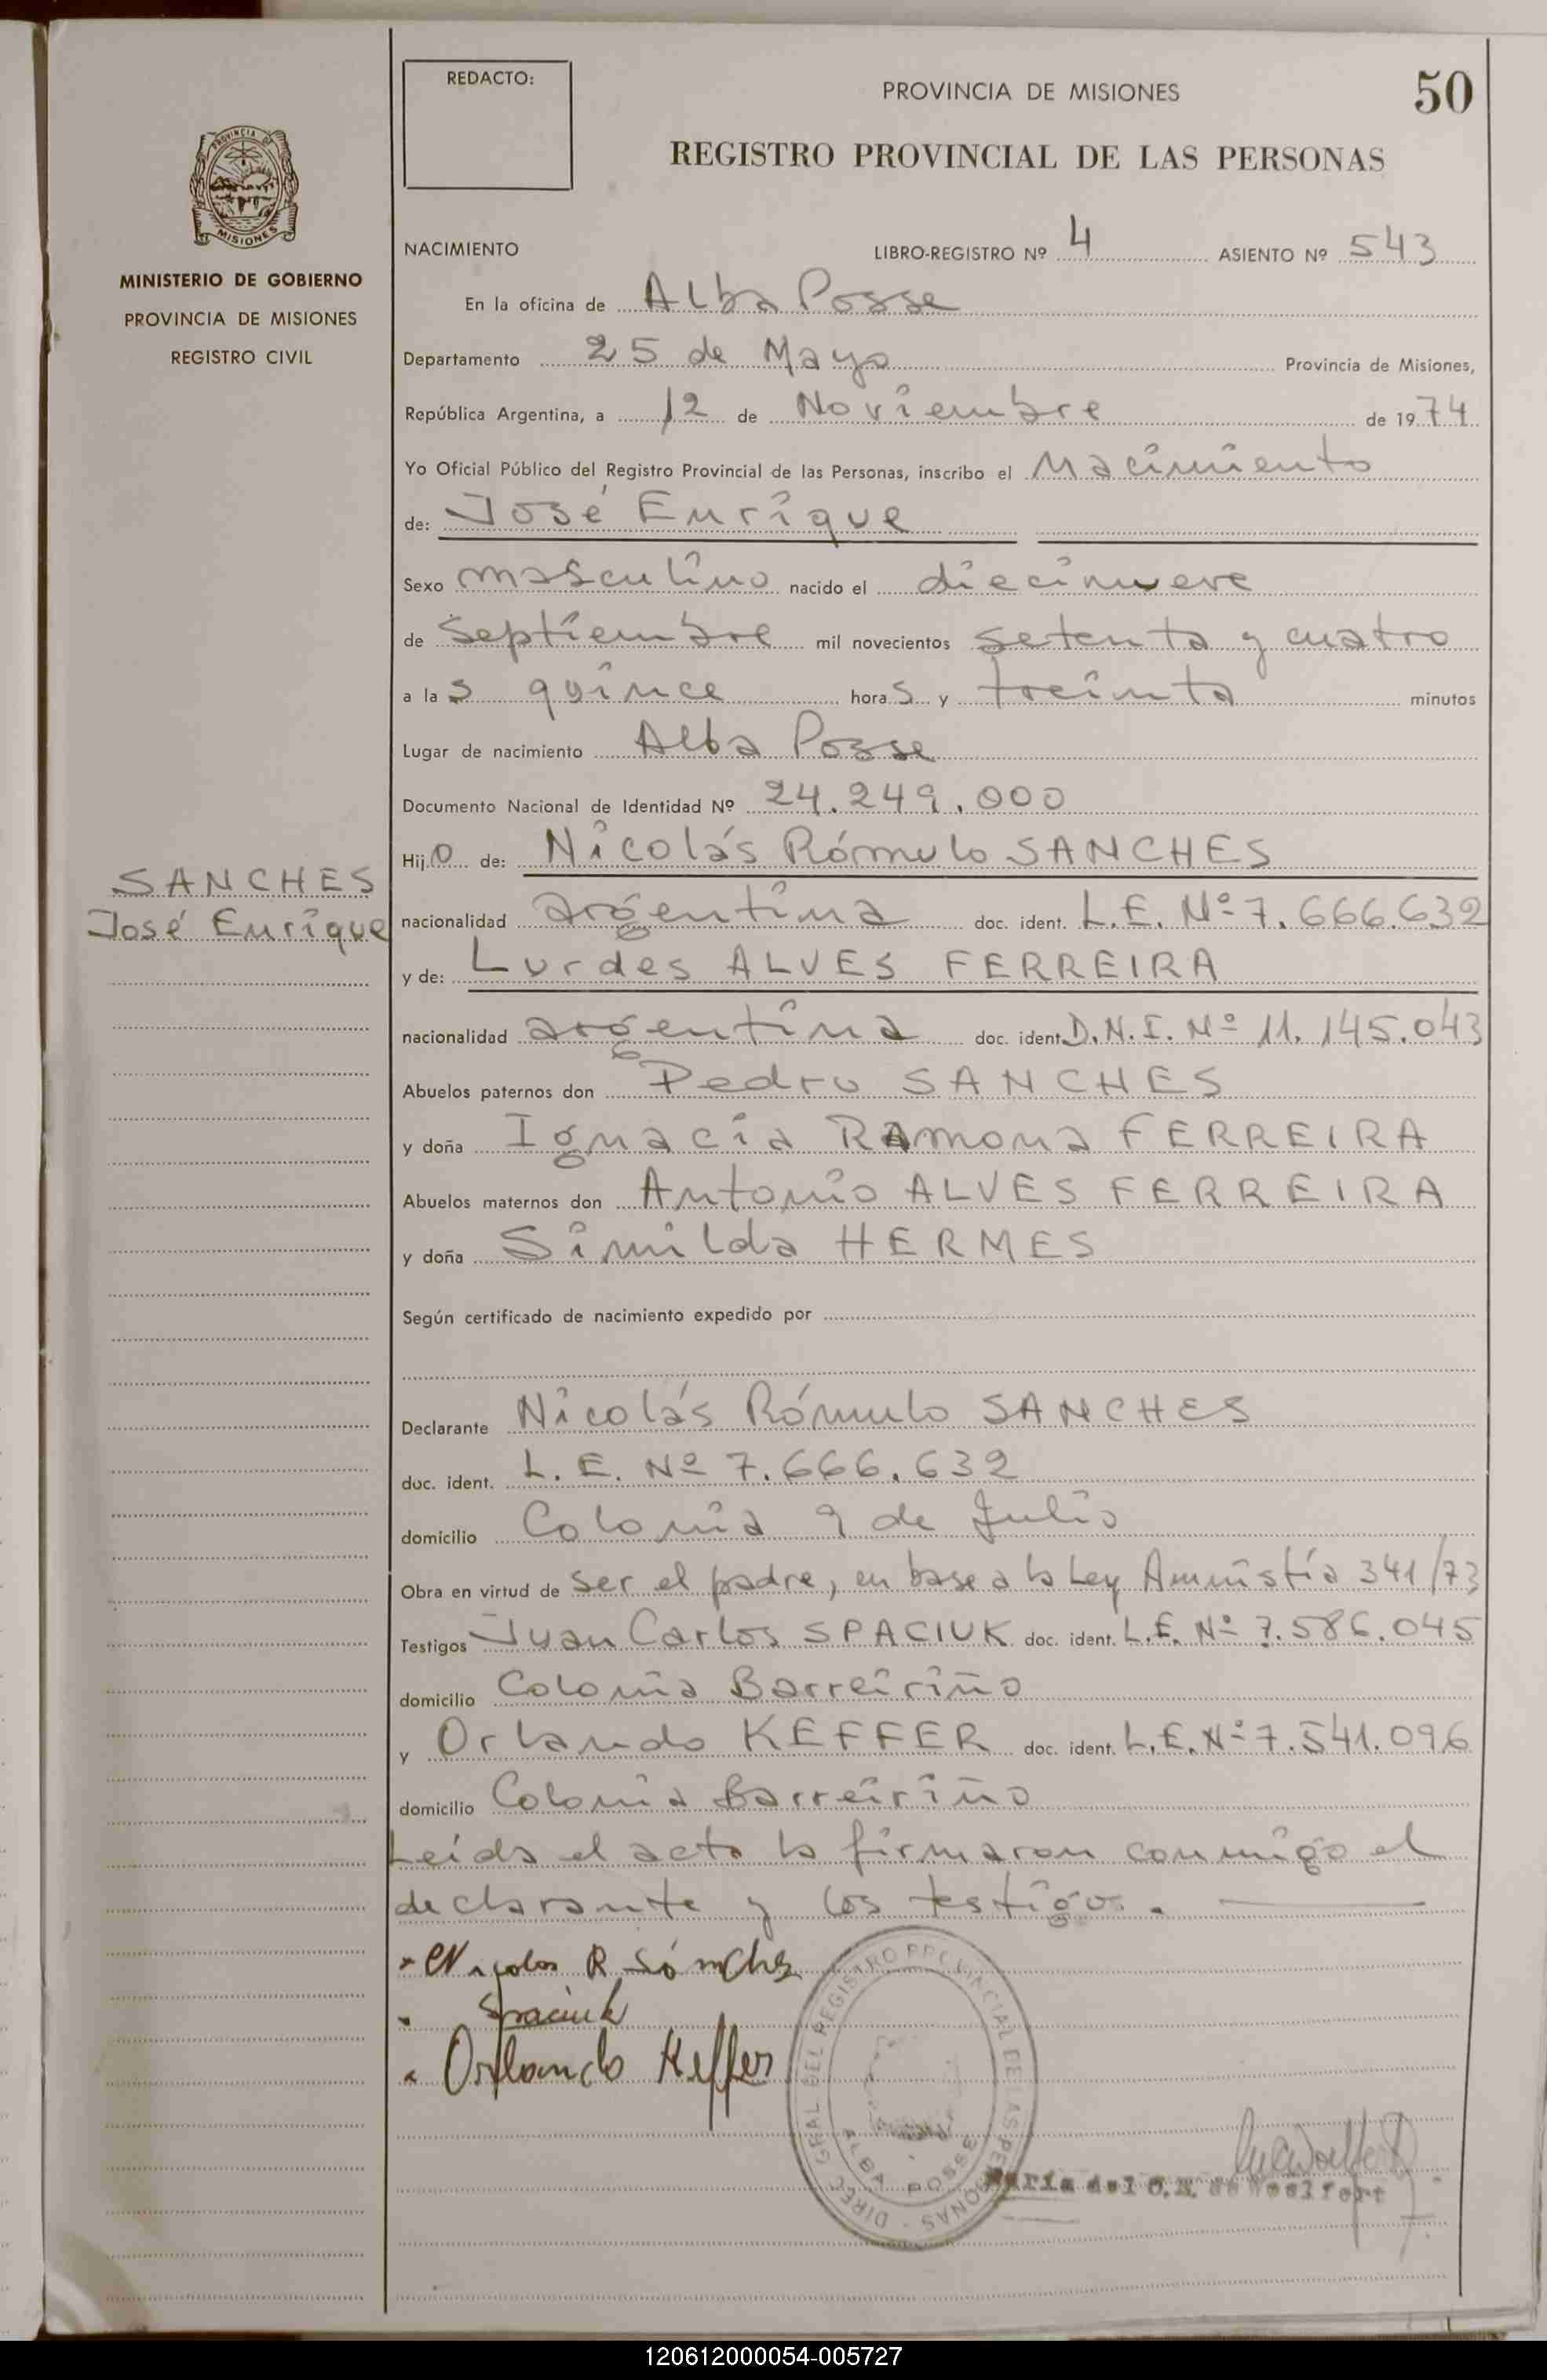 REDACTO:
PROVINCIA DE MISIONES
50
REGISTRO PROVINCIAL DE LAS PERSONAS
PROVINCIA DE
MISIONES
MINISTERIO DE GOBIERNO
PROVINCIA DE MISIONES
REGISTRO CIVIL
NACIMIENTO LIBRO-REGISTRO Nº 4 ASIENTO Nº 543
En la oficina de Alba Posse
Departamento 25 de Mayo Provincia de Misiones,
República Argentina, a 12 de Noviembre de 1974
Yo Oficial Público del Registro Provincial de las Personas, inscribo el Nacimiento
de: José Enrique
Sexo masculino nacido el diecinueve
de Septiembre mil novecientos setenta y cuatro
a las quince horas y treinta minutos
Lugar de nacimiento Alba Posse
Documento Nacional de Identidad Nº 24.249.000
Hijo de: Nicolás Rómulo SANCHES
SANCHES
José Enrique
nacionalidad argentina doc. ident. L.E. Nº 7.666.632
y de: Lurdes ALVES FERREIRA
nacionalidad argentina doc. ident. D.N.I. Nº 11.145.043
Abuelos paternos don Pedro SANCHES
y doña Ignacia Ramona FERREIRA
Abuelos maternos don Antonio ALVES FERREIRA
y doña Similda HERMES
Según certificado de nacimiento expedido por
Declarante Nicolás Rómulo SANCHES
doc. ident. L.E. Nº 7.666.632
domicilio Colonia 9 de Julio
Obra en virtud de ser el padre, en base a la Ley Amnistía 341/73
Testigos Juan Carlos SPACIUK doc. ident. L.E. Nº 7.586.045
domicilio Colonia Barreiriño
y Orlando KEFFER doc. ident. L.E. Nº 7.541.096
domicilio Colonia Barreiriño
Leída el acta la firmaron conmigo el
declarante y los testigos.
Nicolas R Sánches
Spaciuk
Orlando Keffer
DIREC GRAL DEL REGISTRO PROVINCIAL DE LAS PERSONAS
ALBA POSSE
María del C.
120612000054-005727